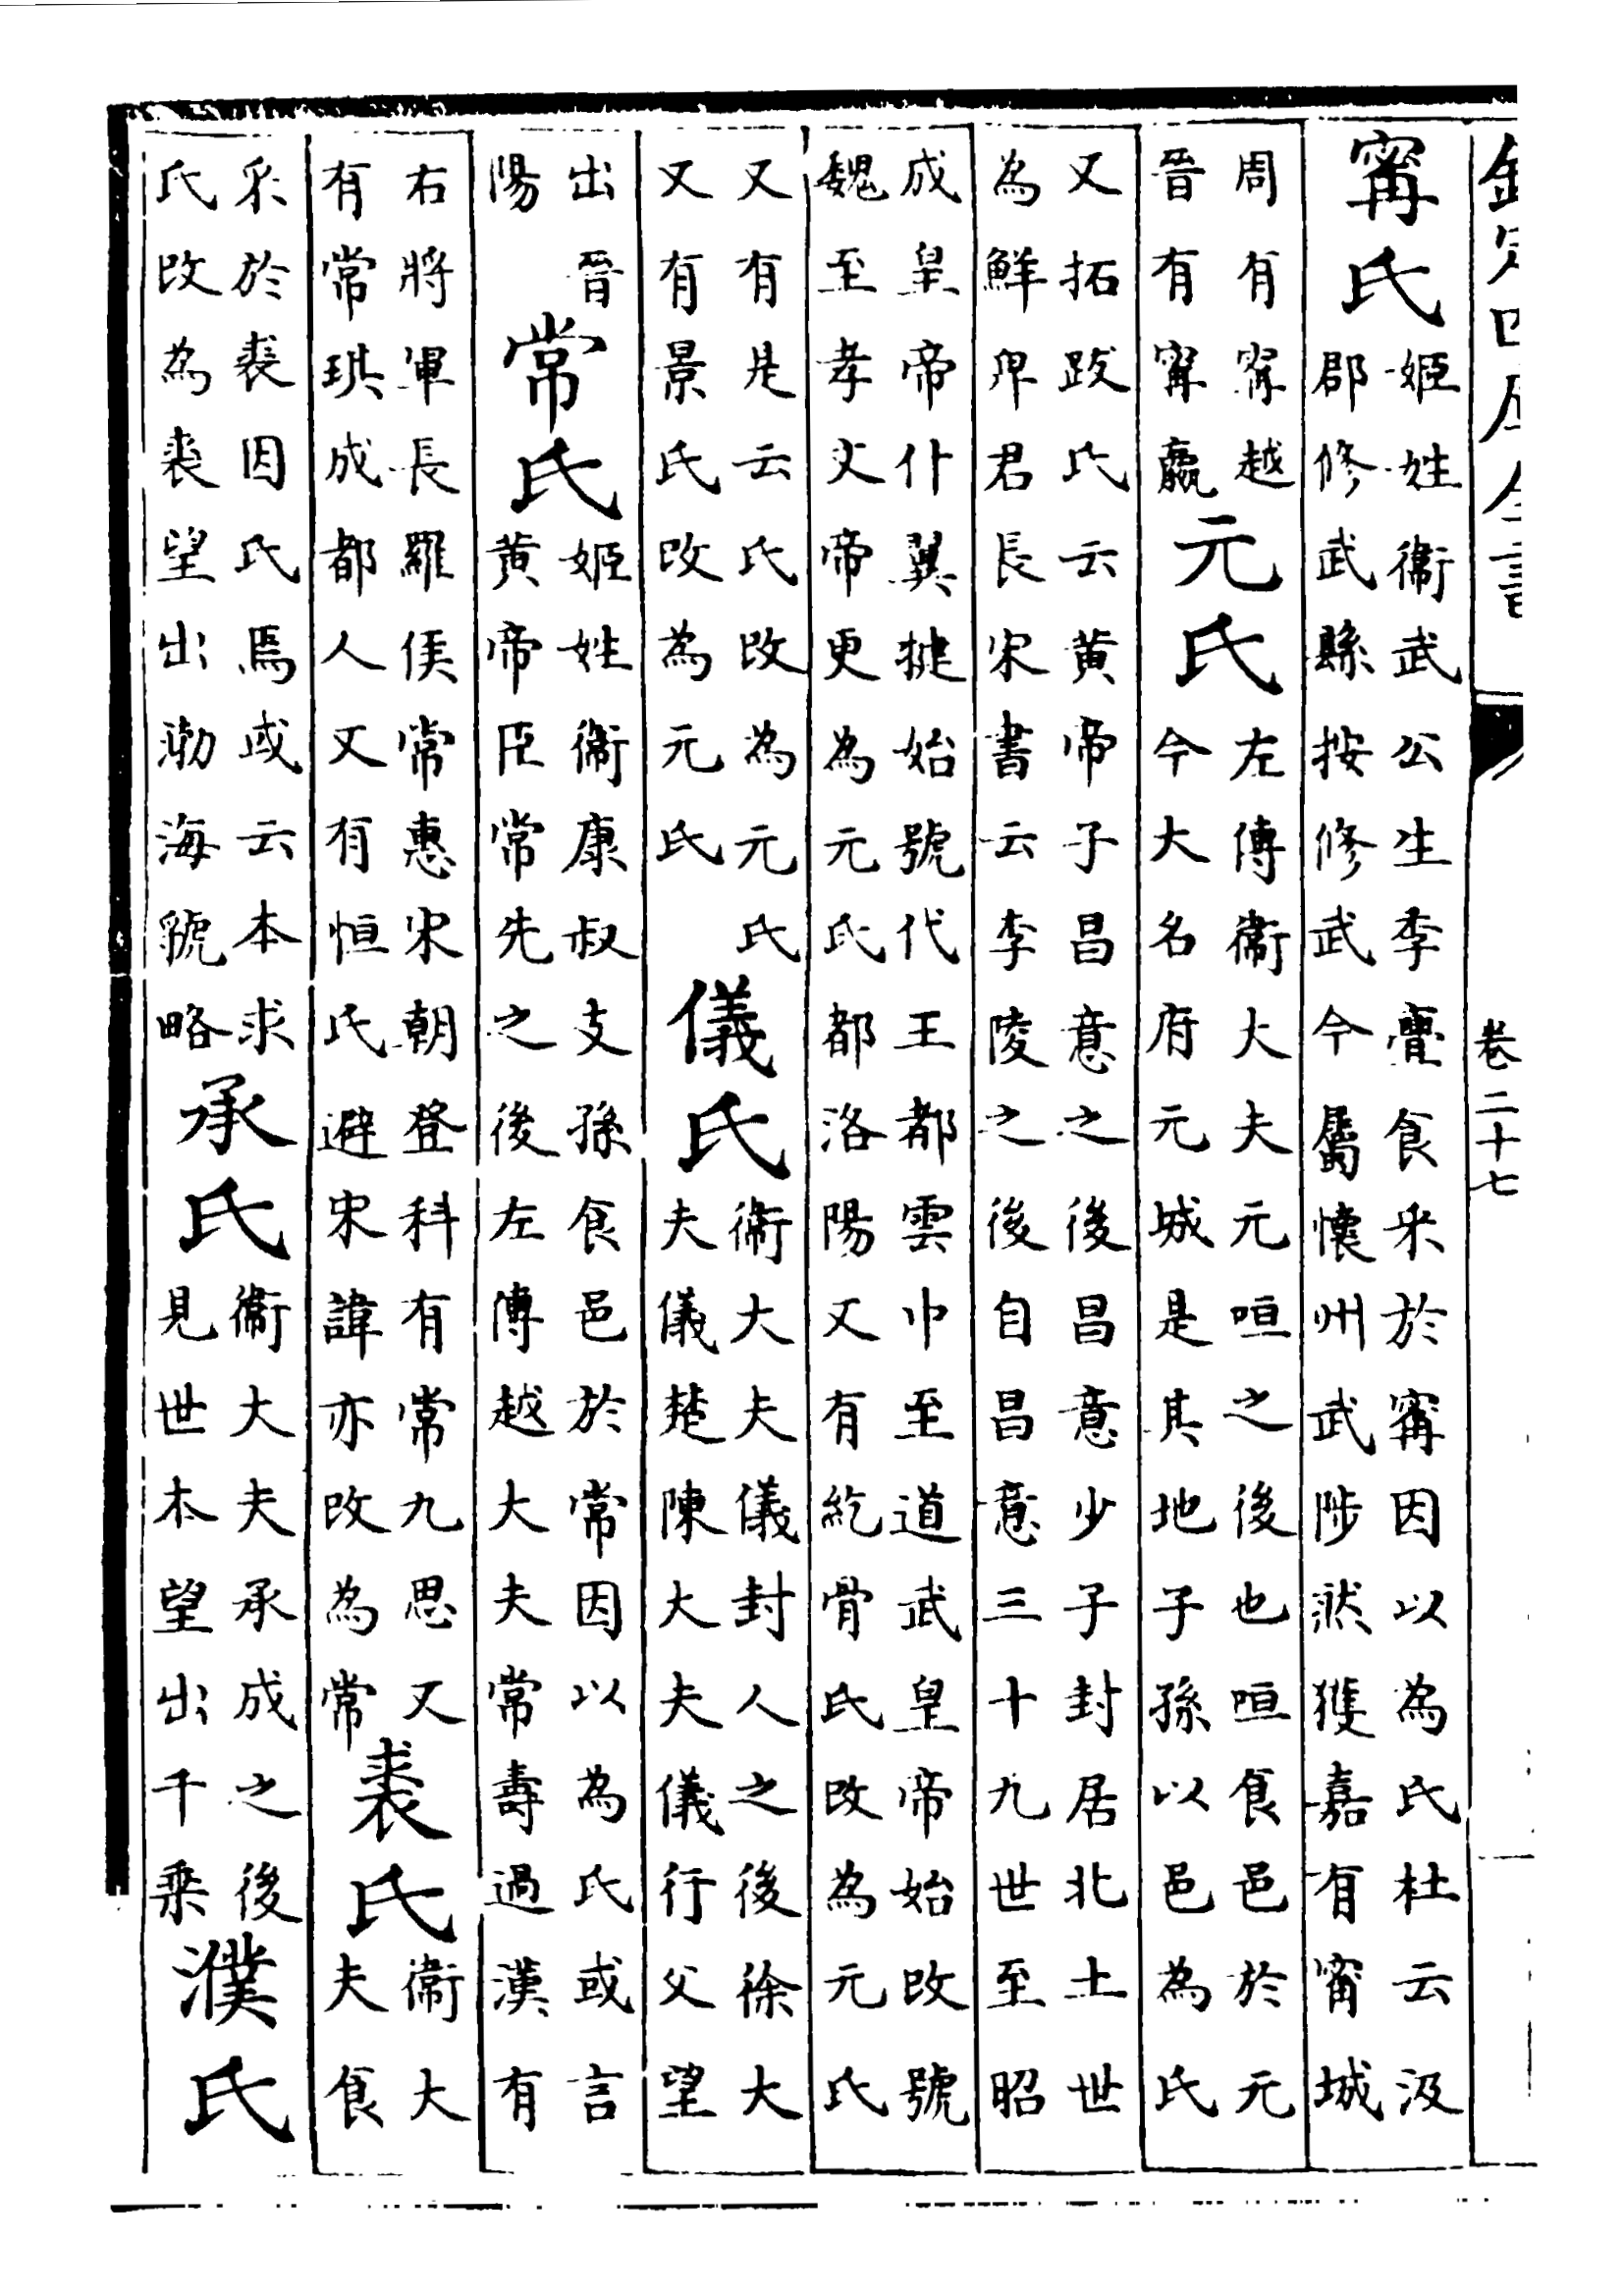 欽定四庫全書
卷二十七
甯氏
姬姓衛武公生季亹食采於甯因以為氏杜云汲
郡修武縣按修武今屬懷州武陟然獲嘉有甯城
周有甯越
晉有甯嬴
元氏
左傳衛大夫元咺之後也咺食邑於元
今大名府元城是其地子孫以邑為氏
又拓跋氏云黄帝子昌意之後昌意少子封居北土世
為鮮卑君長宋書云李陵之後自昌意三十九世至昭
成皇帝什翼揵始號代王都雲中至道武皇帝始改號
魏至孝文帝更為元氏都洛陽又有紇骨氏改為元氏
又有是云氏改為元氏
又有景氏改為元氏
儀氏
衛大夫儀封人之後徐大
夫儀楚陳大夫儀行父望
出晉
陽
常氏
姬姓衛康叔支孫食邑於常因以為氏或言
黄帝臣常先之後左傳越大夫常壽過漢有
右將軍長羅侯常惠宋朝登科有常九思又
有常珙成都人又有恒氏避宋諱亦改為常
裘氏
衛大
夫食
采於裘因氏焉或云本求
氏改為裘望出渤海虢略
承氏
衛大夫承成之後
見世本望出千乗
濮氏